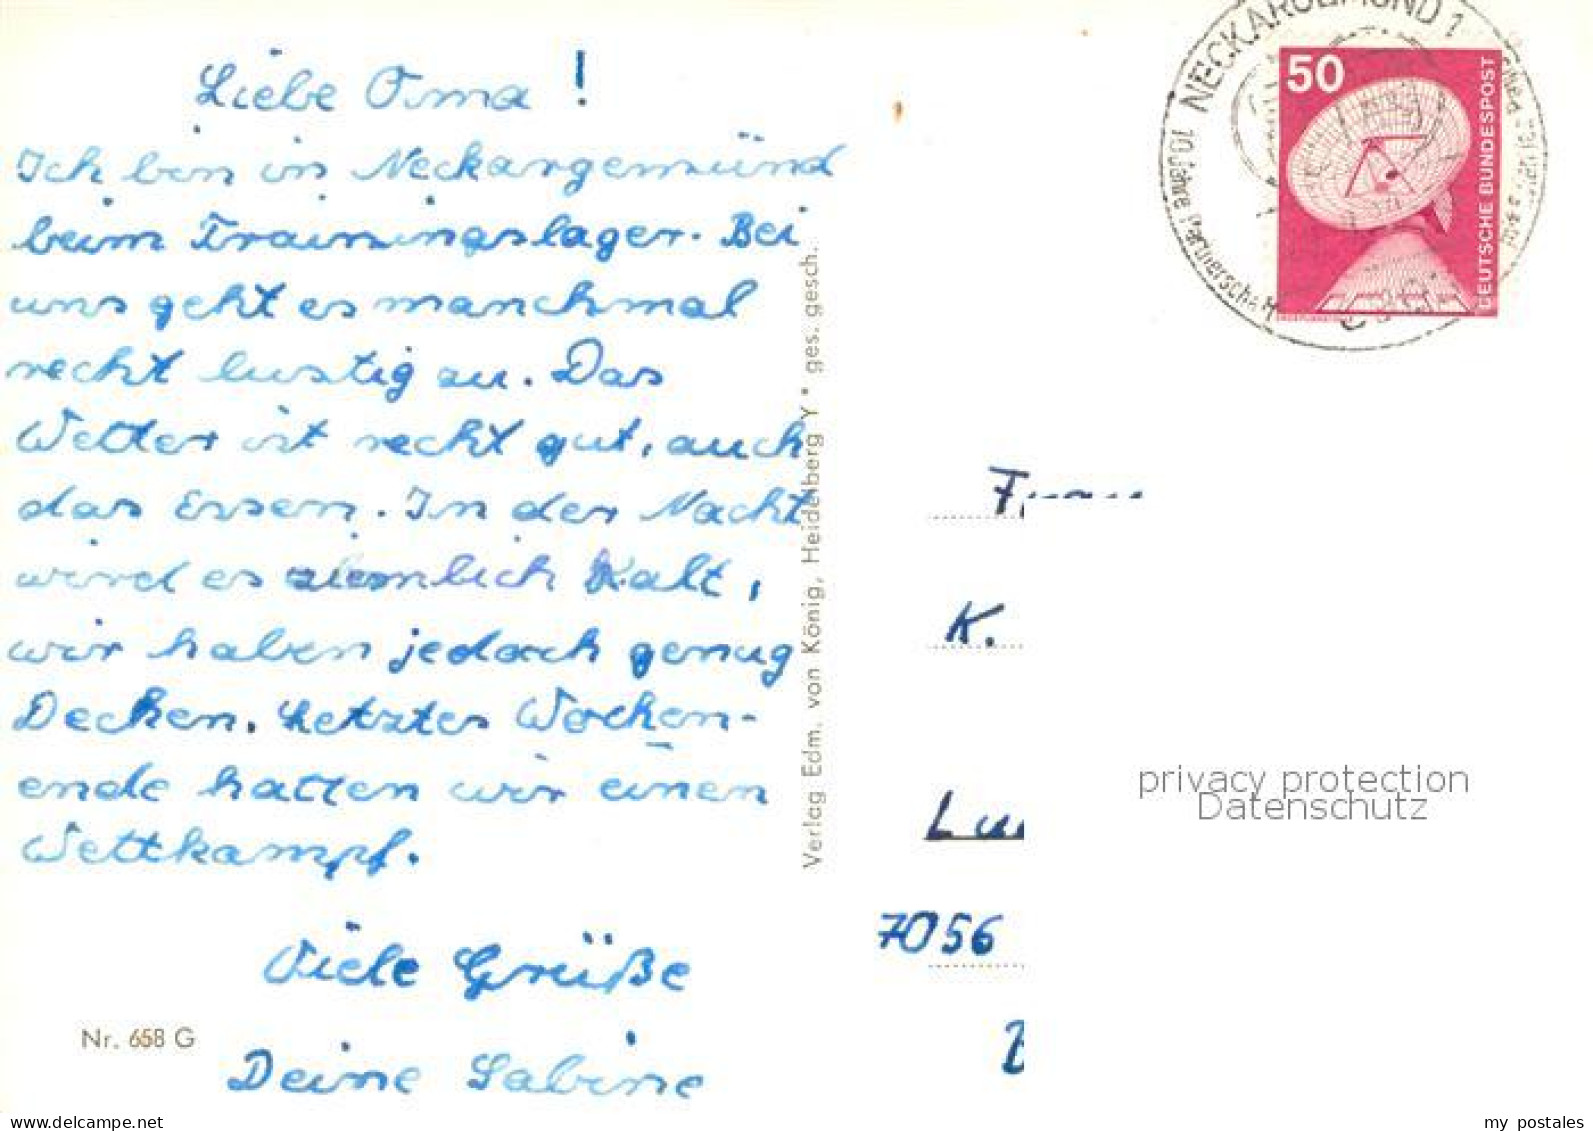 Liebe Oma!
Ich bin in Neckargemünd
beim Trainingslager. Bei
uns geht es manchmal
recht lustig zu. Das
Wetter ist recht gut, auch
das Essen. In der Nacht
wird es ziemlich kalt,
wir haben jedoch genug
Decken. Letztes Wochen-
ende hatten wir einen
Wettkampf.
Viele Grüße
Deine Sabine
Nr. 658 G
Verlag Edm. von König, Heidelberg Y * ges. gesch.
NECKARGEMÜND 1
10 Jahre Partnerschaft
50
DEUTSCHE BUNDESPOST
Frau
K.
7056
privacy protection
Datenschutz
www.delcampe.net
my_postales